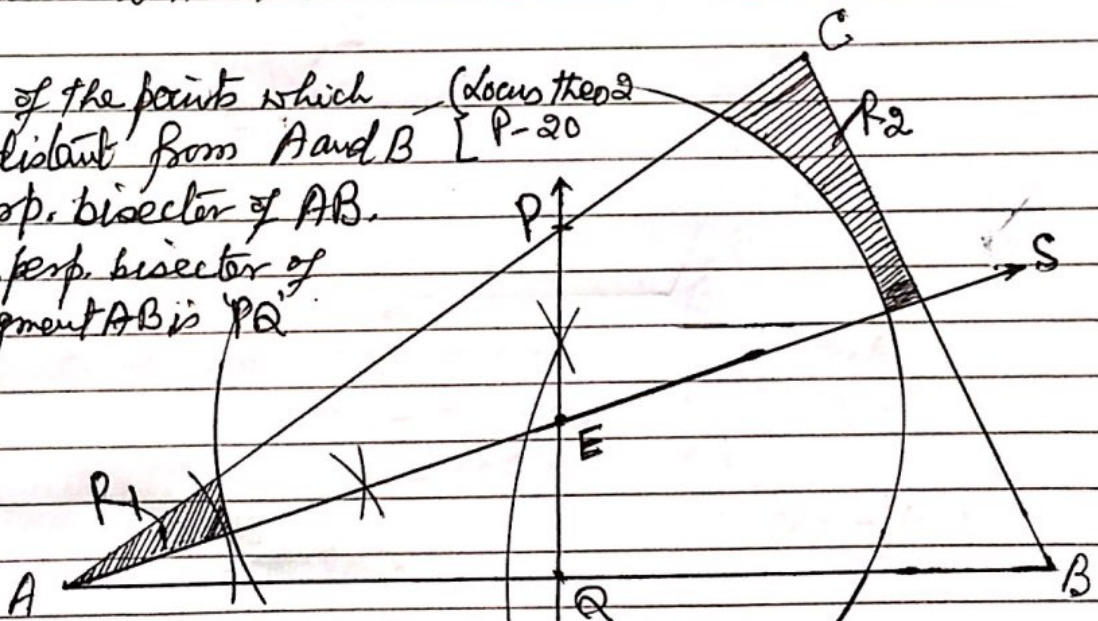 of the points which (Locus theo 2
distant from A and B [ P-20
rp. bisecter of AB.
perp. bisecter of
gment AB is 'PQ'
C
R2
P
S
E
R1
A
Q
B